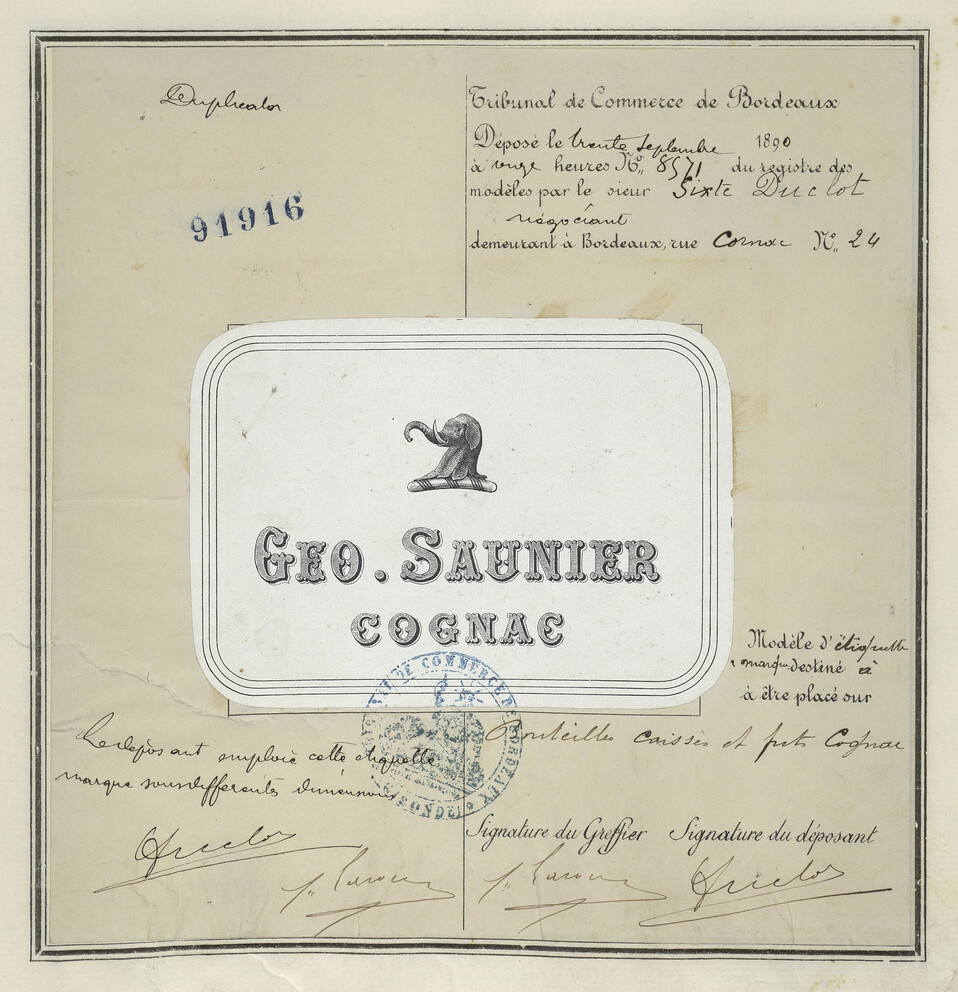 Duplicata
91916
Tribunal de Commerce de Bordeaux
Déposé le trente septembre 1890
à onze heures N° 8571 du registre des
modèles par le sieur Sixte Duclot
négociant
demeurant à Bordeaux, rue Cornac N° 24
GEO. SAUNIER
COGNAC
Modèle d'étiquette
marque destiné à
à être placé sur
Bouteilles caisses et futs Cognac
Le déposant emploie cette etiquette
marque sous differentes dimensions
DE COMMERCE DE BORDEAUX
Signature du Greffier Signature du déposant
Duclot
Duclot